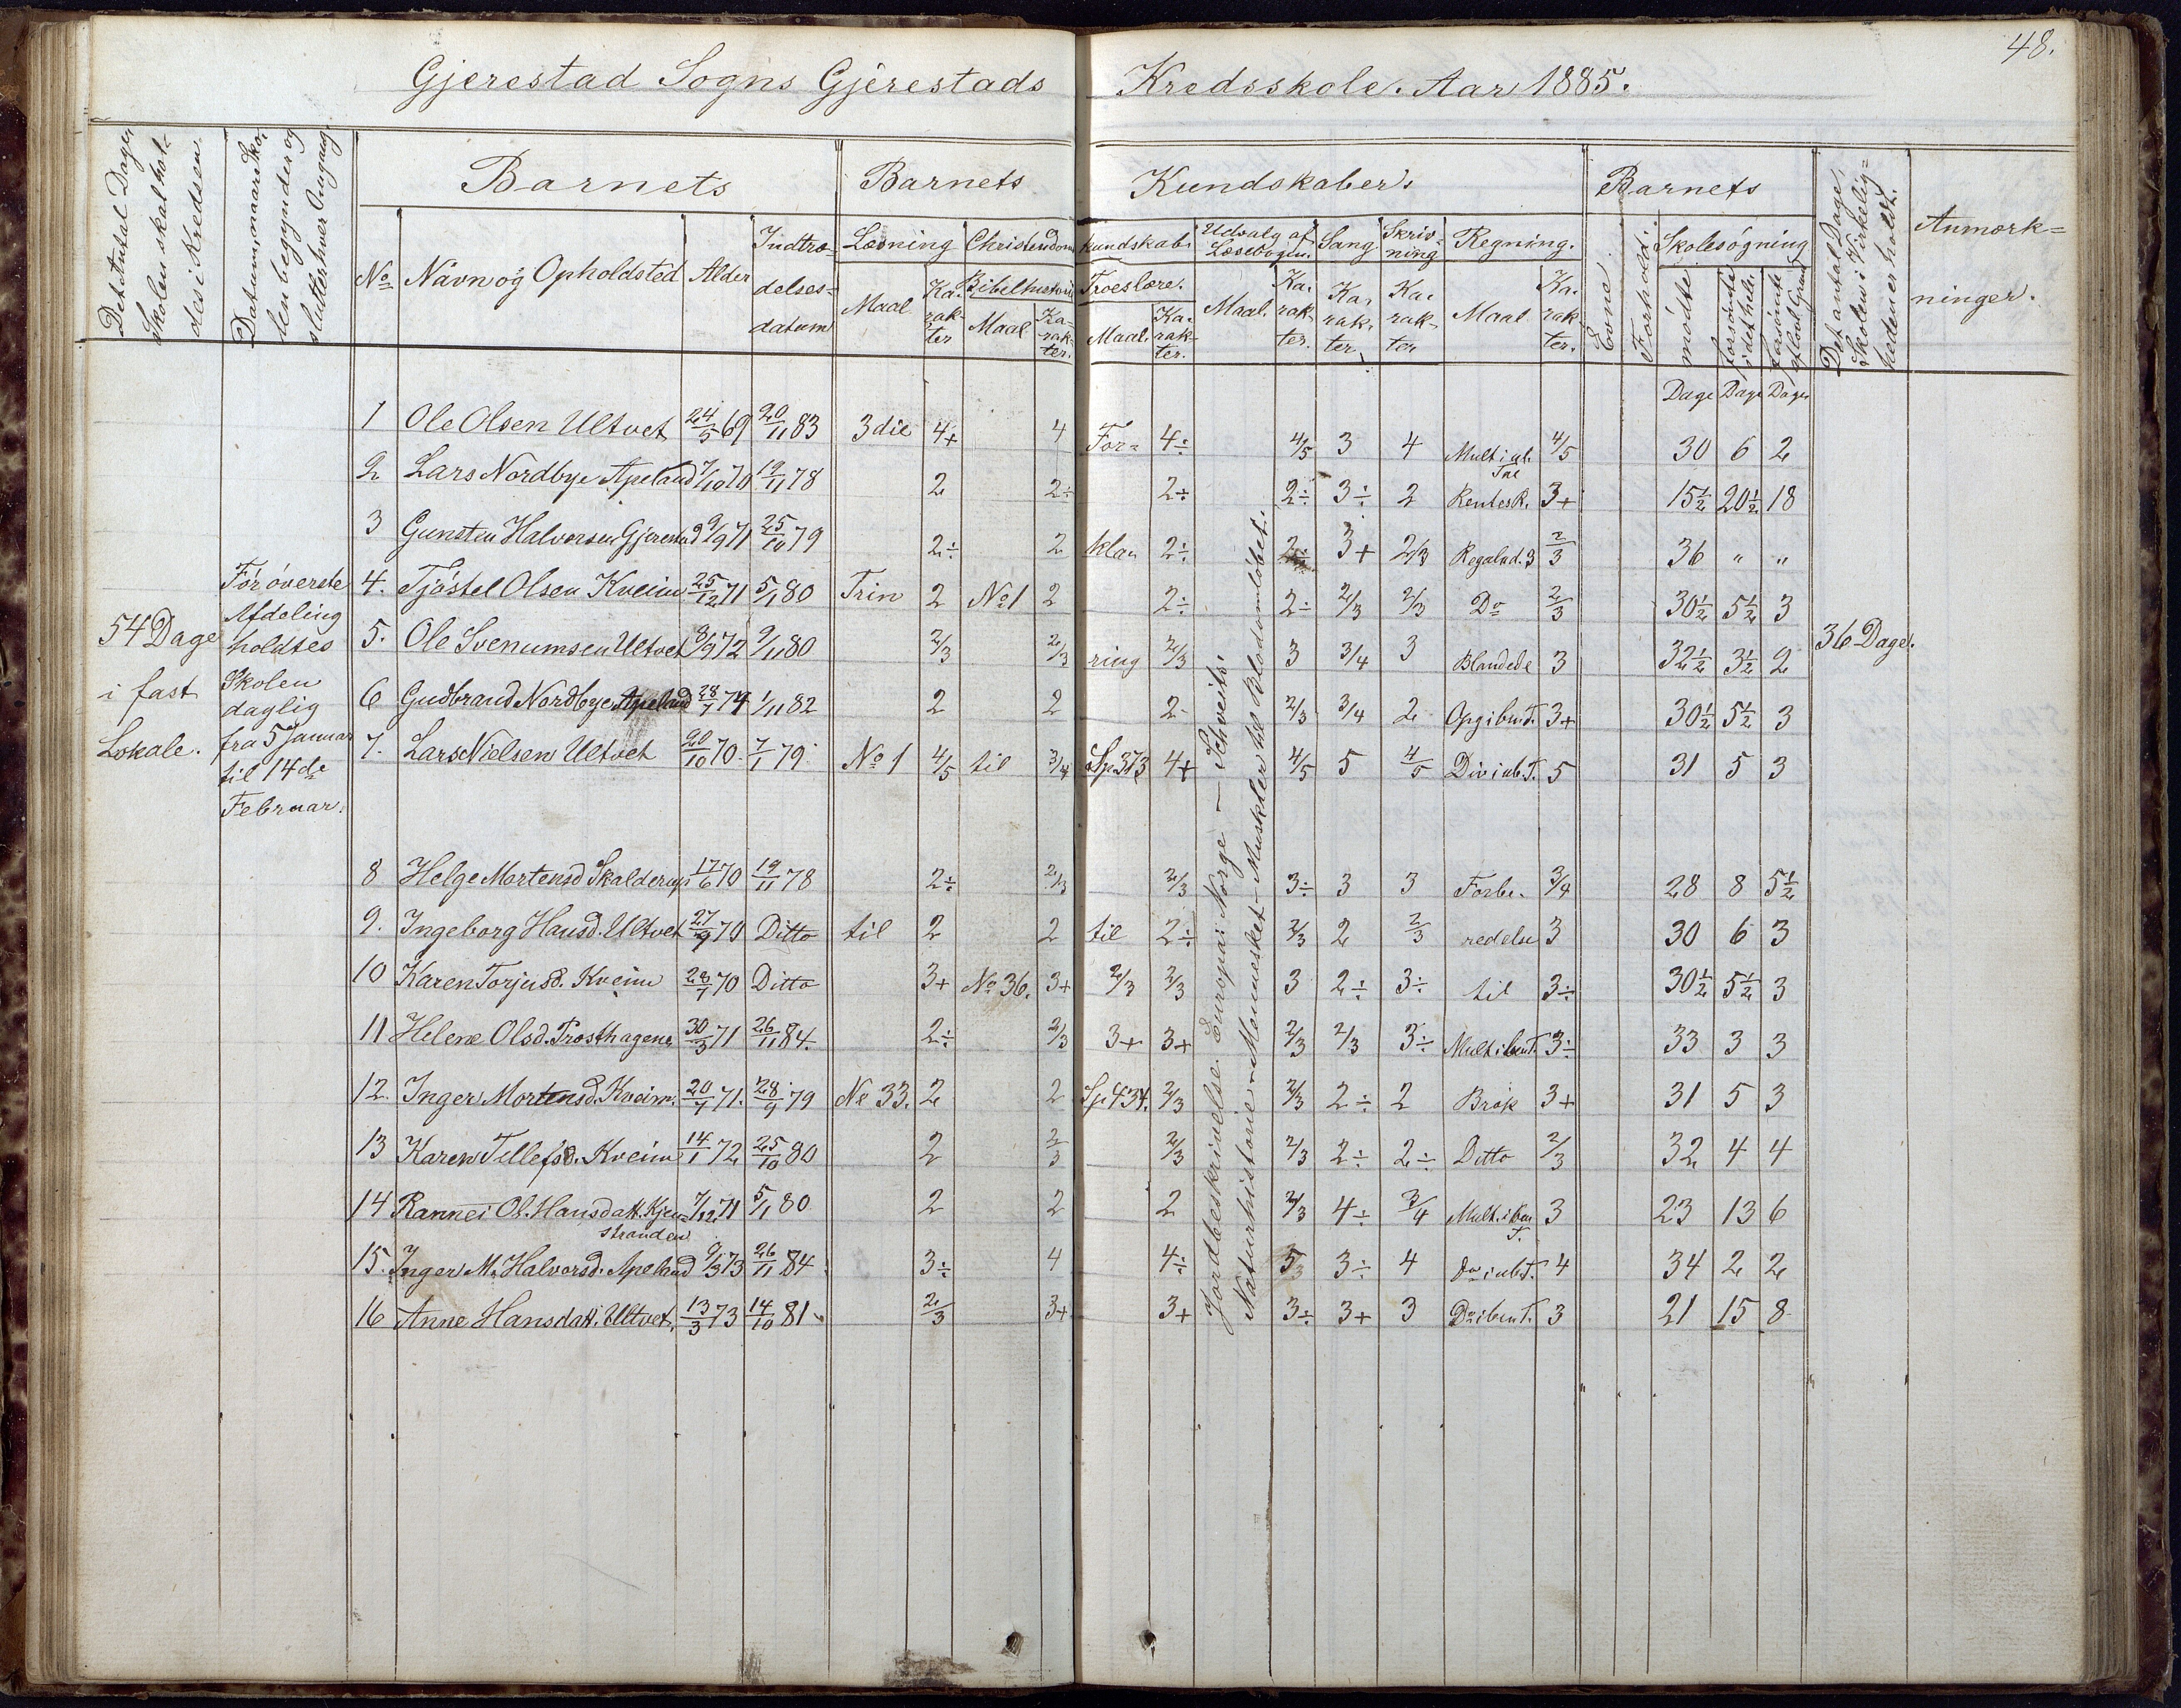 48.
Gjerestad Sogns Gjerestads Kredsskole. Aar 1885.
Det Antal Dage, Skolen skal holdes i Kredsen.
Datum, naar Skolen begynder og slutter hver Omgang.
Barnets
Barnets Kundskaber.
Barnets
Det antal Dage, Skolen i Virkeligheden er holdt.
Anmærkninger.
No Navn og Opholdsted Alder Indtrædelsesdatum
Læsning Christendomskundskab. Udvalg af Læsebogen. Sang Skrivning Regning.
Maal Karakter Bibelhistorie Maal Karakter. Troeslære. Maal. Karakter. Maal. Karakter. Karakter. Karakter Maal Karakter.
Evne. Forhold. Skolesøgning
mødte forsømte i det hele forsømte af lovl. Grund
Dage Dage Dage
54 Dage i fast Lokale.
For øverste Afdeling holdtes Skolen daglig fra 5 Januar til 14de Februar.
1 Ole Olsen Ultvet 24/5 69 20/11 83 3die 4+ 4 For= 4÷ 4/5 3 4 Mult i ub. Tal 4/5 30 6 2
2 Lars Nordbye Apeland 7/10 70 19/11 78 2 2÷ 2÷ 2÷ 3÷ 2 Rentesk. 3+ 15½ 20½ 18
3 Gunsten Halvorsen Gjerestad 9/9 71 25/10 79 2÷ 2 kla= 2÷ 2÷ 3+ 2/3 Regulad. 3 2/3 36 " "
4. Tjøstel Olsen Kveim 25/12 71 5/1 80 Trin 2 No 1 2 2÷ 2÷ 2/3 2/3 Do 2/3 30½ 5½ 3
5. Ole Svenumsen Ultvet 8/9 72 9/11 80 2/3 2/3 ring 2/3 3 3/4 3 Blandede 3 32½ 3½ 2 36 Dage.
6 Gudbrand Nordbye Apeland 28/7 74 1/11 82 2 2 2 2/3 3/4 2 Opg i ben T. 3+ 30½ 5½ 3
7. Lars Nielsen Ultvet 20/10 70 7/1 79 No 1 4/5 til 3/4 Sp. 373 4+ 4/5 5 4/5 Div i ub. T. 5 31 5 3
8 Helge Mortensd Skalderup 17/6 70 19/11 78 2÷ 2/3 2/3 3÷ 3 3 Forbe- 3/4 28 8 5½
9. Ingeborg Hansd. Ultvet 27/9 70 Ditto til 2 2 til 2÷ 2/3 2 2/3 redelse 3 30 6 3
10 Karen Torjusd. Kveim 28/7 70 Ditto 3+ No 36. 3+ 2/3 2/3 3 2÷ 3÷ til 3÷ 30½ 5½ 3
11 Helene Olsd. Prosthagene 30/3 71 26/11 84. 2÷ 2/3 3+ 3+ 2/3 2/3 3÷ Mult i ben T. 3÷ 33 3 3
12. Inger Mortensd. Kveim. 20/7 71. 28/9 79 No 33. 2 2 Sp. 434. 2/3 2/3 2÷ 2 Brøk 3+ 31 5 3
13 Karen Tellefsd. Kveim 14/1 72 25/10 80 2 2/3 2/3 2/3 2÷ 2÷ Ditto 2/3 32 4 4
14 Rannei Ol. Hansdatt. Kjenstranden 7/12 71 5/1 80 2 2 2 2/3 4÷ 3/4 Mult. i ben T. 3 23 13 6
15. Inger M. Halvorsd. Apeland 9/3 73 26/11 84 3÷ 4 4÷ 3÷ 4 Do i ub T. 4 34 2 2
16 Anne Hansdatt. Ultvet, 13/3 73 14/10 81 2/3 3+ 3+ 3÷ 3+ 3 Do i ben T. 3 21 15 8
Jordbeskrivelse. Europa: Norge - Schveits.
Naturhistorie. Mennesket - Muskler til Blodomløbet.